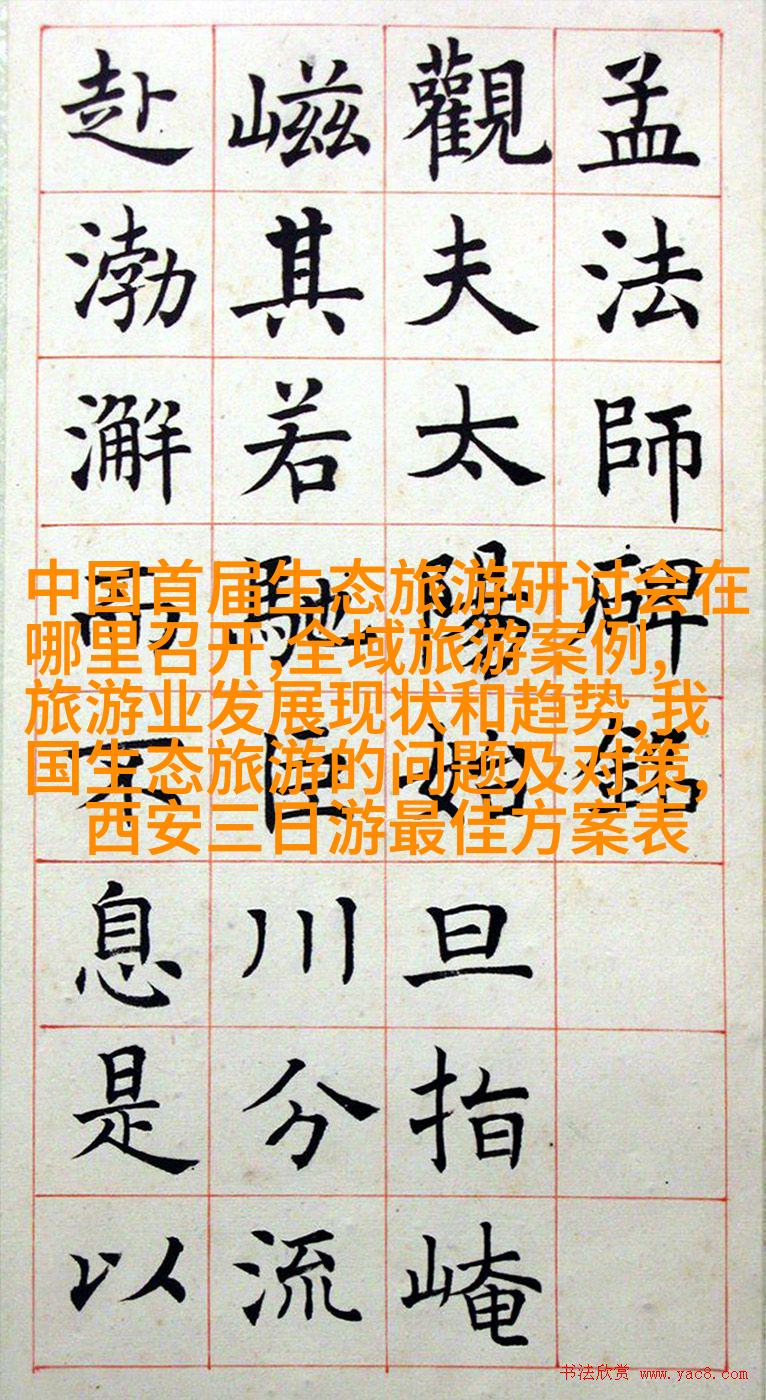 孟法師碑銘
觀夫太陽始旦指崦
嵫其若馳巨川分流
赴渤澥而不息是以
中国首届生态旅游研讨会在
哪里召开,全域旅游案例,
旅游业发展现状和趋势,我
国生态旅游的问题及对策,
西安三日游最佳方案表
书法欣赏 www.yac8.com